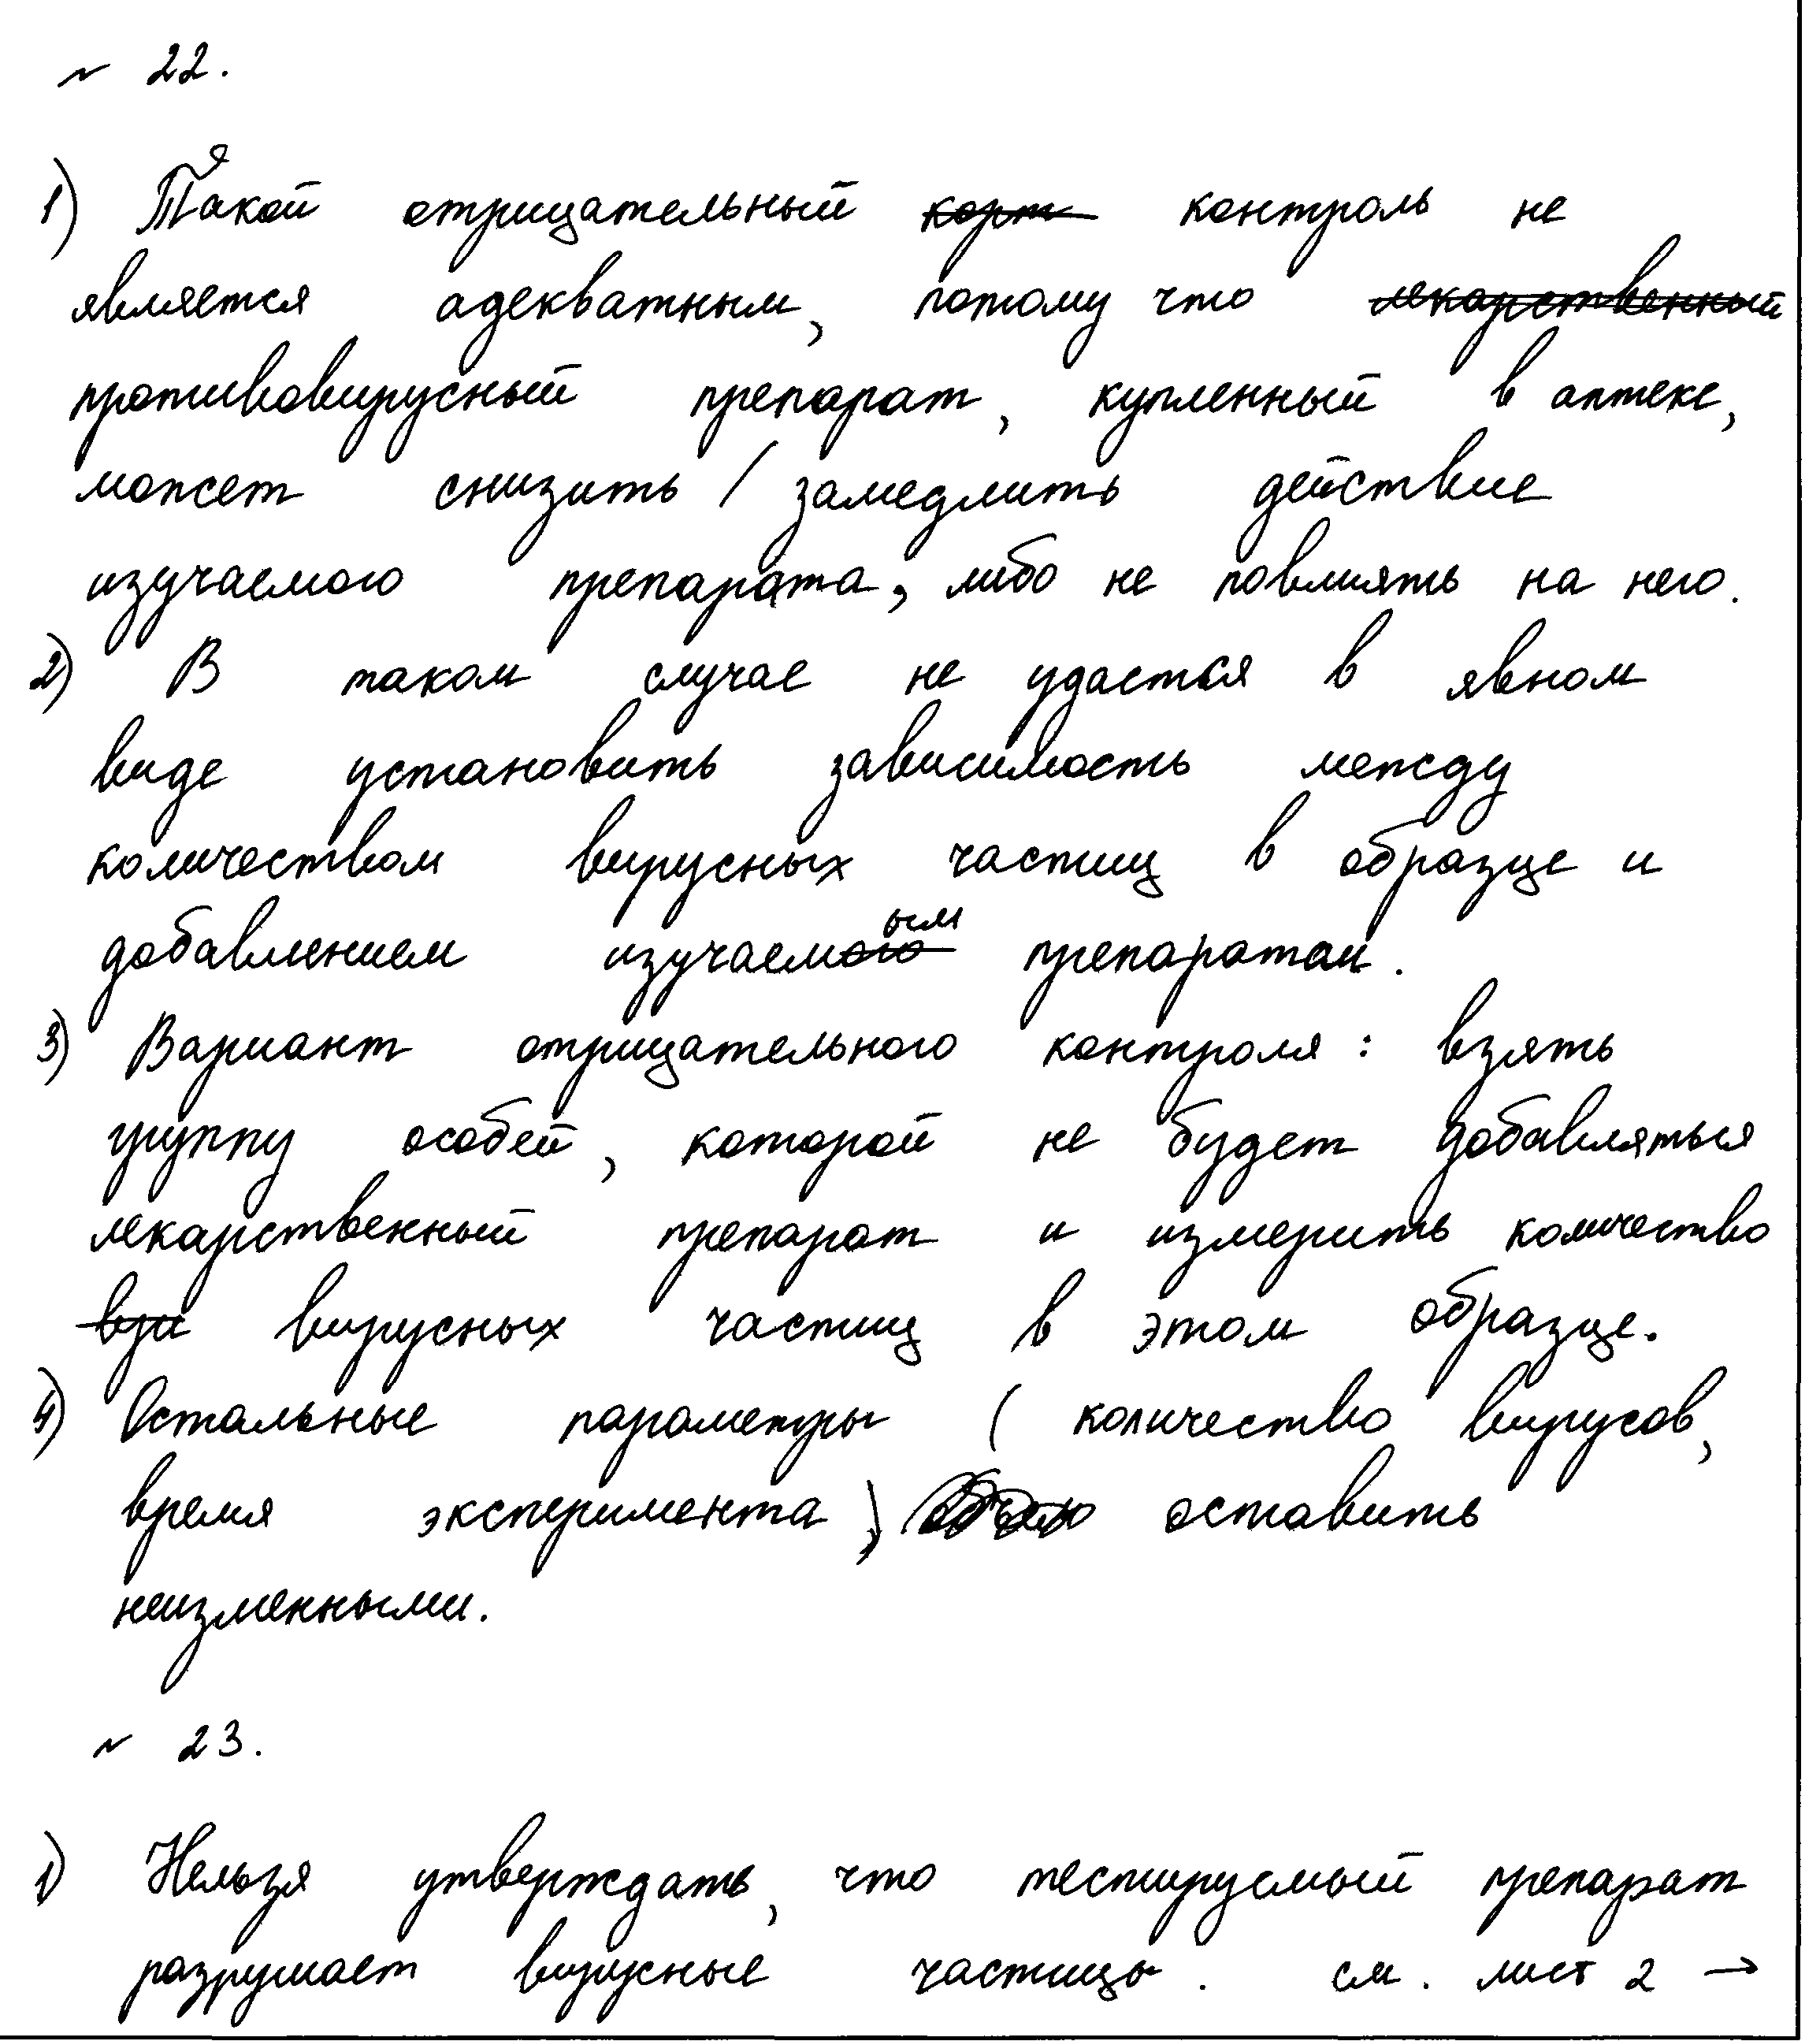 ~ 22.
1) Такой отрицательный корт контроль не
является адекватным, потому что лекарственный
противовирусный препарат, купленный в аптеке,
может снизить / замедлить действие
изучаемого препарата, либо не повлиять на него.
2) В таком случае не удастся в явном
виде установить зависимость между
количеством вирусных частиц в образце и
добавлением изучаемого ым препаратом.
3) Вариант отрицательного контроля: взять
группу особей, которой не будет добавляться
лекарственный препарат и измерить количество
ври вирусных частиц в этом образце.
4) Остальные параметры (количество вирусов,
время эксперимента), оставить
неизменными.
~ 23.
1) Нельзя утверждать, что тестируемый препарат
разрушает вирусные частицы. см. лист 2 →